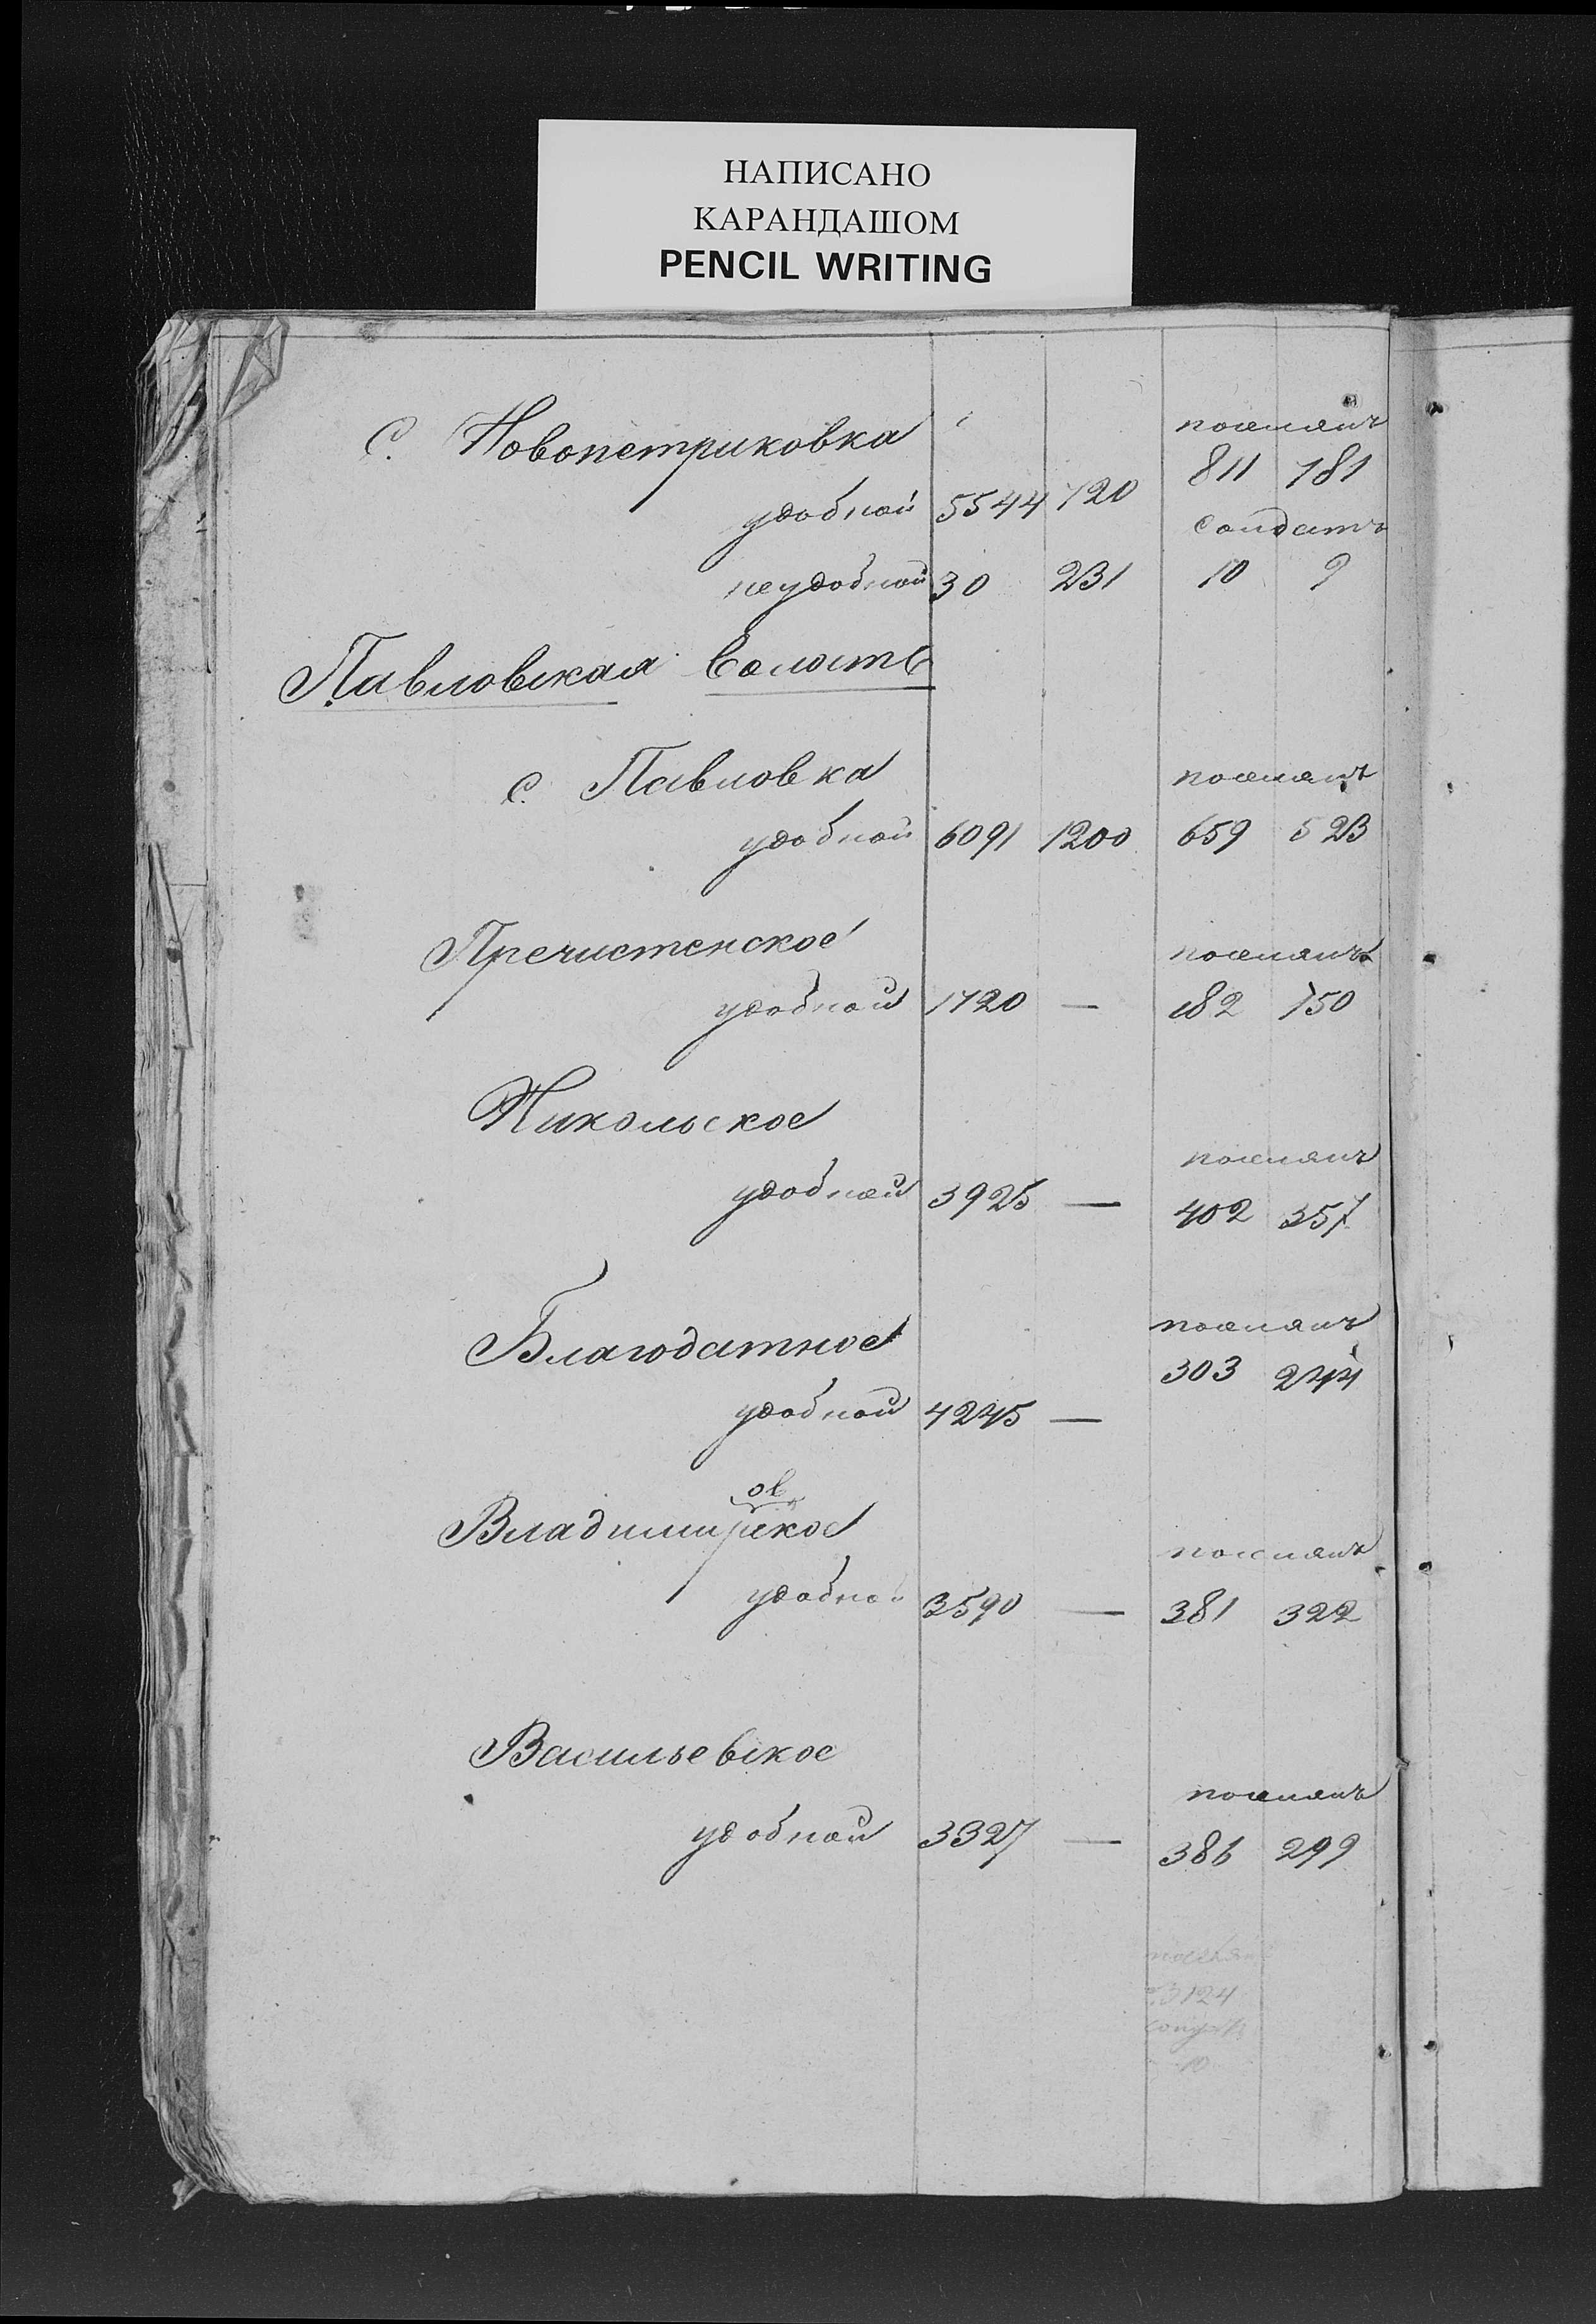 НАПИСАНО
КАРАНДАШОМ
PENCIL WRITING
С. Новопетриковка поселянъ
811 781
удобной 5544 720 солдатъ
неудобной 30 231 10 9
Павловская волость
с. Павловка поселянъ
удобной 6091 1200 659 523
Пречистенское поселянъ
удобной 1720 — 182 150
Никольское
поселянъ
удобной 3925 — 402 357
Благодатное поселянъ
303 244
удобной 4245 —
ов
Владимирское
поселянъ
удобной 3590 — 381 322
Васильевское
поселянъ
удобной 3327 — 386 299
поселянъ
3124
10